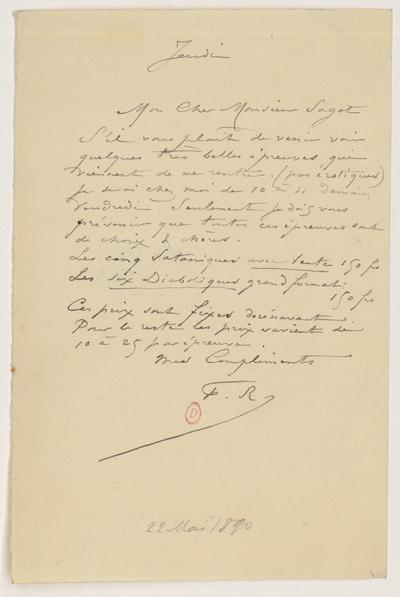 Jeudi
Mon Cher Monsieur Sagot
S'il vous plait de venir voir
quelques très belles épreuves qui
viennent de me rentrer. (pas érotiques)
je serai chez moi de 10 à 11 demain
Vendredi. Seulement je dois vous
prévenir que toutes ces épreuves sont
de choix & chères.
Les cinq Sataniques avec texte 150 fs
Les six Diaboliques grand format
150 fs
Ces prix sont fixes dorénavant
Pour le reste les prix varient de
10 à 25 par épreuve.
mes Compliments
F. R
D
22 Mai 1890